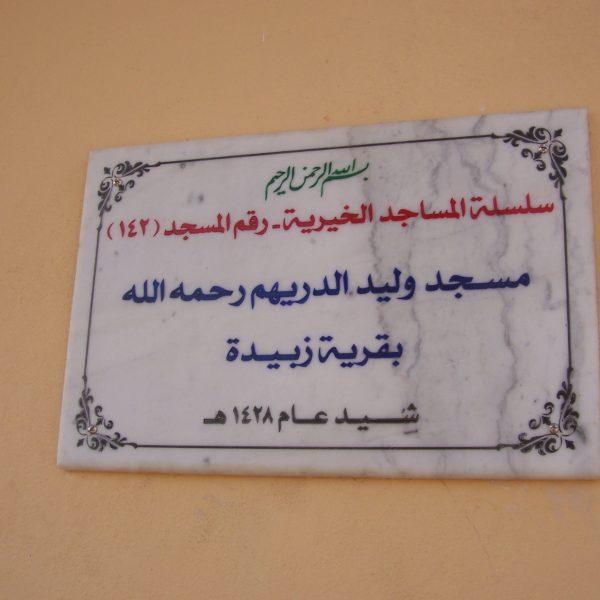 بسم الله الرحمن الرحيم
سلسلة المساجد الخيرية - رقم المسجد (١٤٢)
مسجد وليد الدريهم رحمه الله
بقرية زبيدة
شيد عام ١٤٢٨ هـ